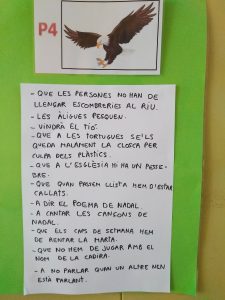 P4
- QUE LES PERSONES NO HAN DE
LLENÇAR ESCOMBRERIES AL RIU.
- LES ÀLIGUES PESQUEN.
- VINDRÀ EL TIÓ.
- QUE A LES TORTUGUES SE'LS
QUEDA MALAMENT LA CLOSCA PER
CULPA DELS PLÀSTICS.
- QUE A L'ESGLÈSIA HI HA UN PESSE-
BRE.
- QUE QUAN PASSEM LLISTA HEM D'ESTAR
CALLATS.
- A DIR EL POEMA DE NADAL.
- A CANTAR LES CANSONS DE
NADAL.
- QUE ELS CAPS DE SETMANA HEM
DE RENTAR LA BATA.
- QUE NO HEM DE JUGAR AMB EL
NOM DE LA CADIRA.
- A NO PARLAR QUAN UN ALTRE NEN
ESTÀ PARLANT.